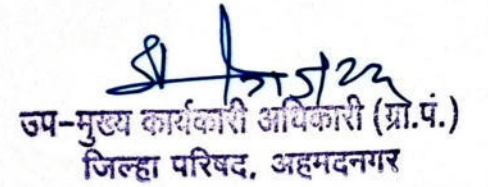 उप-मुख्य कार्यकारी अधिकारी (ग्रा.पं.)
जिल्हा परिषद, अहमदनगर